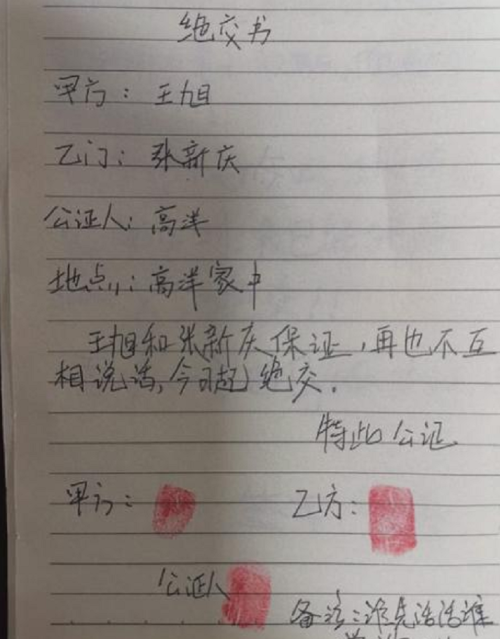 绝交书
甲方：王旭
乙门：张新庆
公证人：高洋
地点：高洋家中
王旭和张新庆保证，再也不互
相说话，今日起绝交．
特此公证
甲方： 乙方：
公证人
备注：谁先话话谁